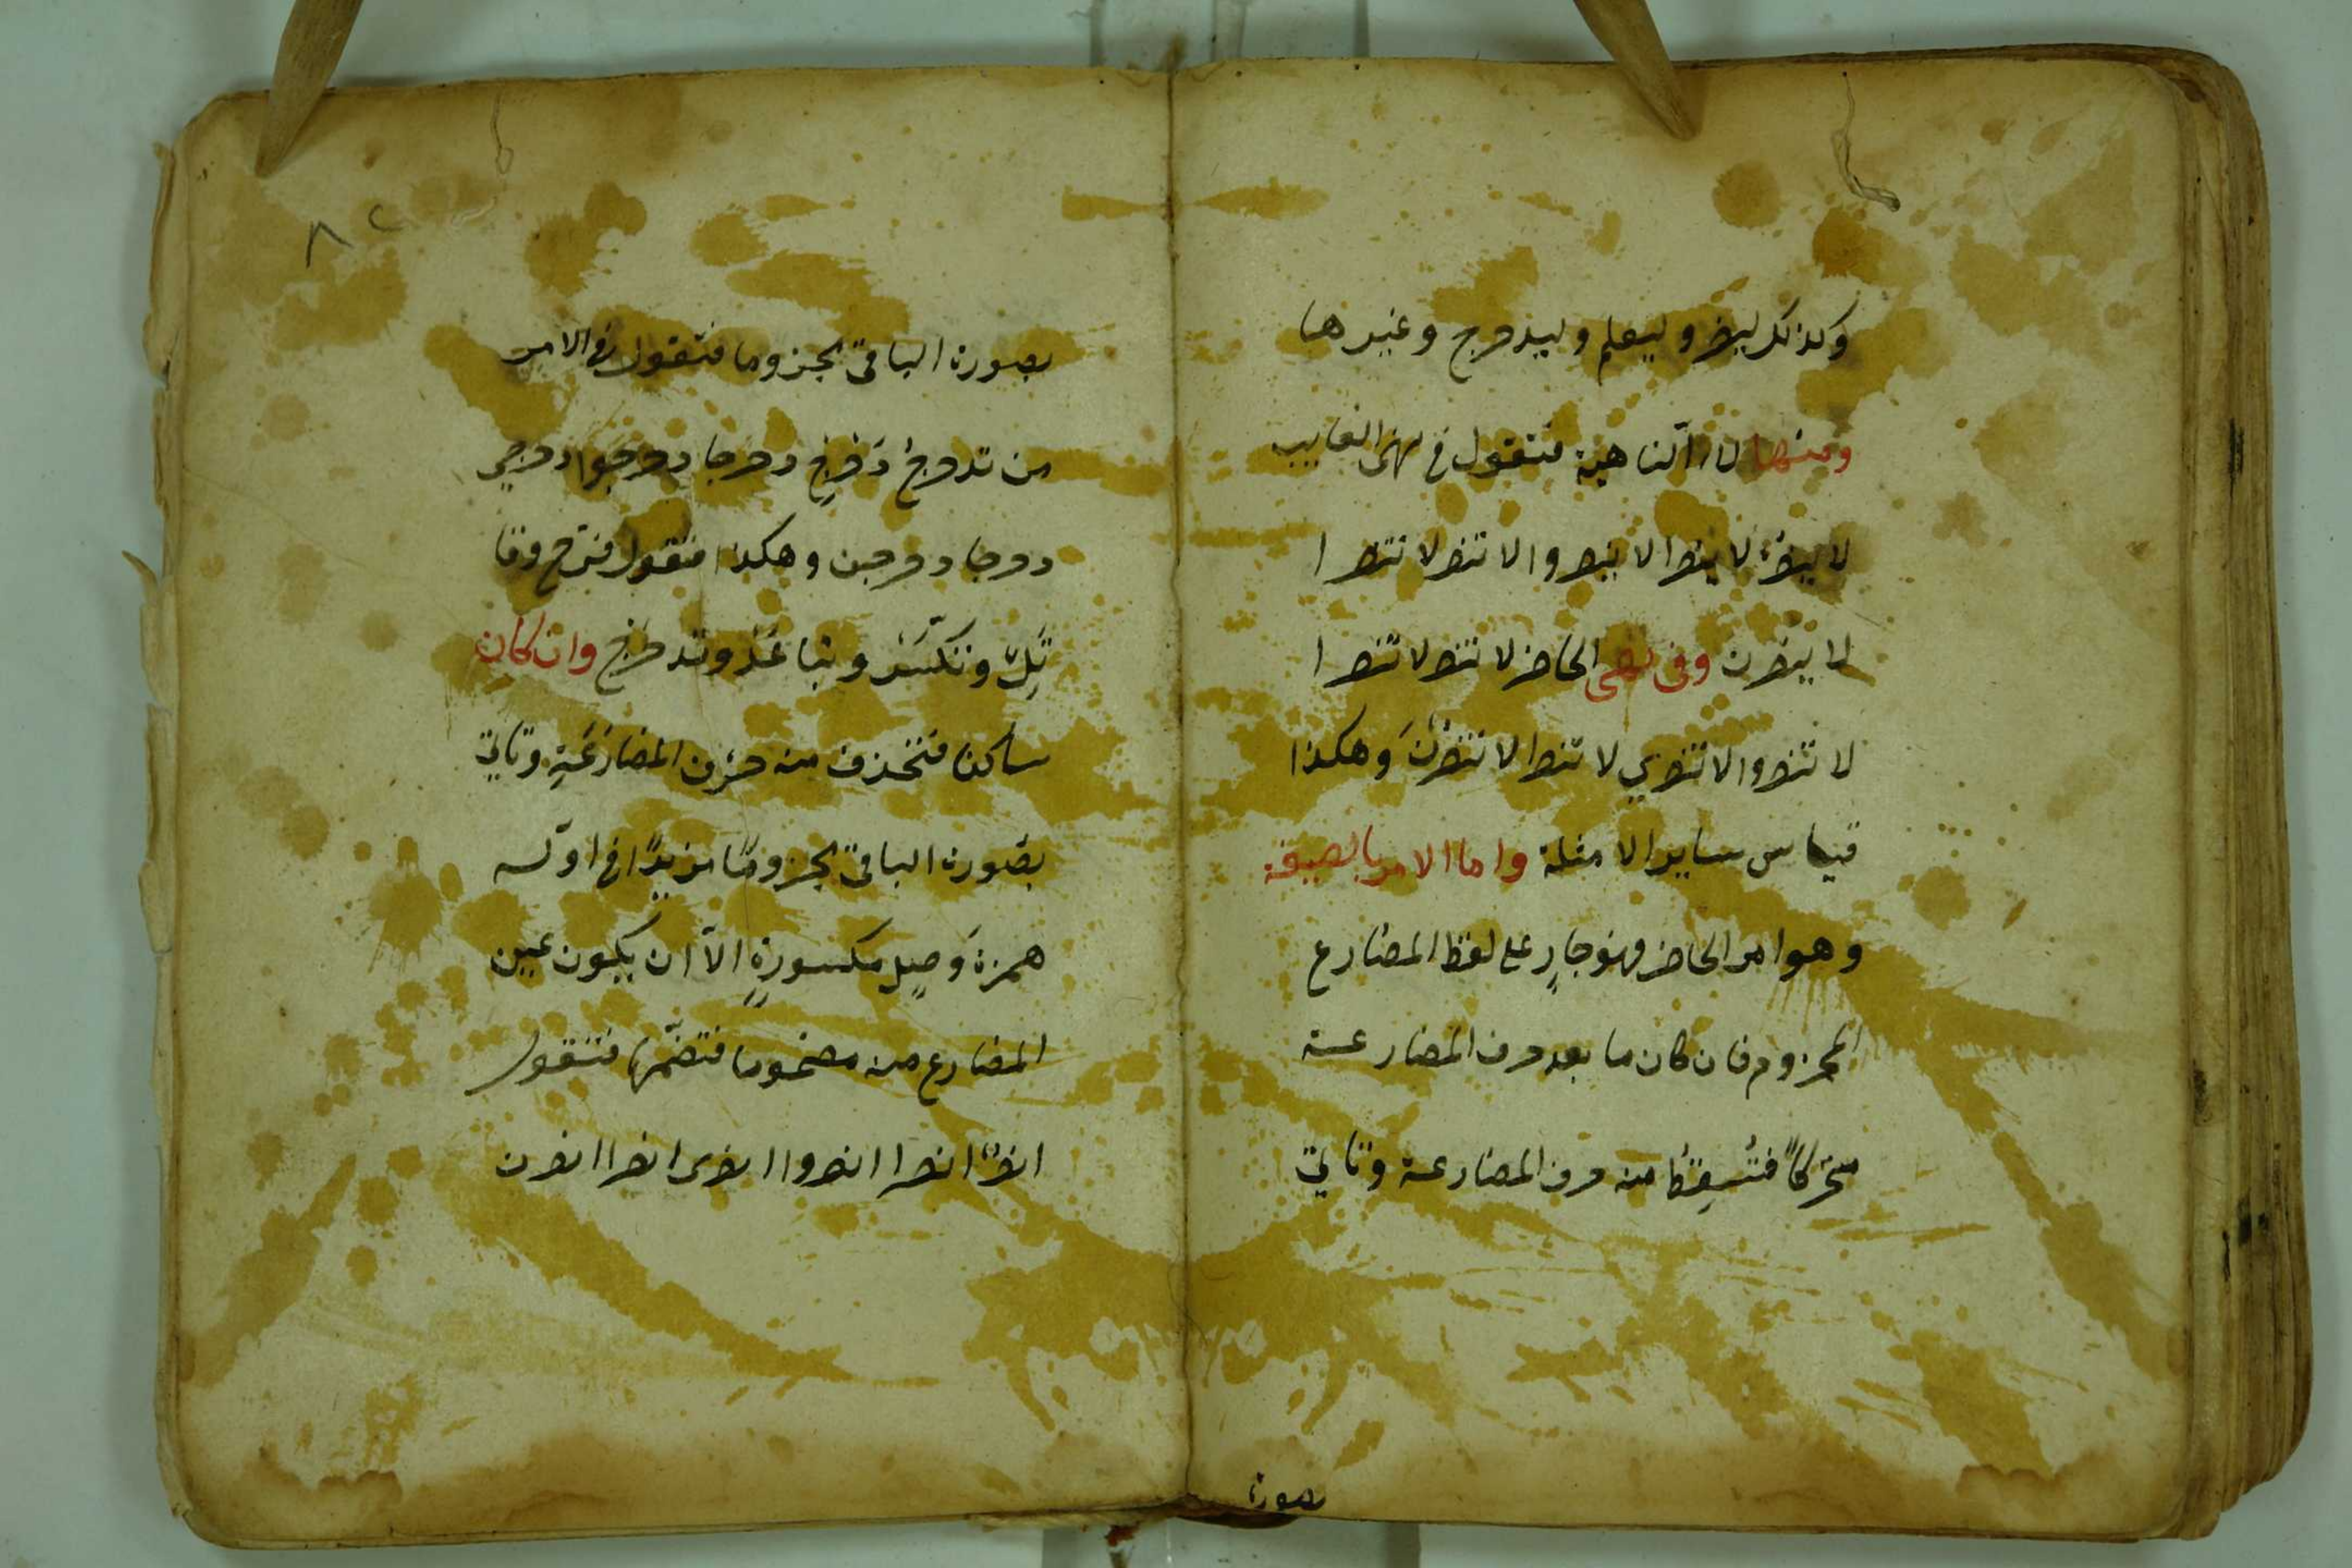 وكذلك لينصر وليعلم وليدحرج وغيرها
ومنها لاء الناهية فتقول في نهى الغايب
لا ينصر لا ينصرا لا ينصروا لا تنصر لا تنصرا
لا ينصرن وفى نهى الحاضر لا تنصر لا تنصرا
لا تنصروا لا تنصري لا تنصرا لا تنصرن وهكذا
قياس ساير الامثلة واما الامر بالصيغة
وهو امر الحاضر فهو جارٍ على لفظ المضارع
المجزوم فان كان ما بعد حرف المضارعة
متحركاً فتُسقِطُ منه حرف المضارعة وتاتي
بصورة
٨٢
بصورة الباقي مجزوما فتقول في الامر
من تدحرجُ دَحْرِج دحرجا دحرجوا دحرجي
دحرجا دحرجن وهكذا فتقول فرّح وقا
تِلْ وتكسّر وتباعَدْ وتدحرَج وان كان
ساكنا فتحذف منه حرف المضارَعَةِ وتاتي
بصورة الباقي مجزومًا مزيدًا في اوّله
همزة وَصلٍ مكسورةٍ الاّ ان يكون عين
المضارع منه مضموما فتضمّها فتقول
انصرْ انصرا انصروا انصرى انصرا انصرن